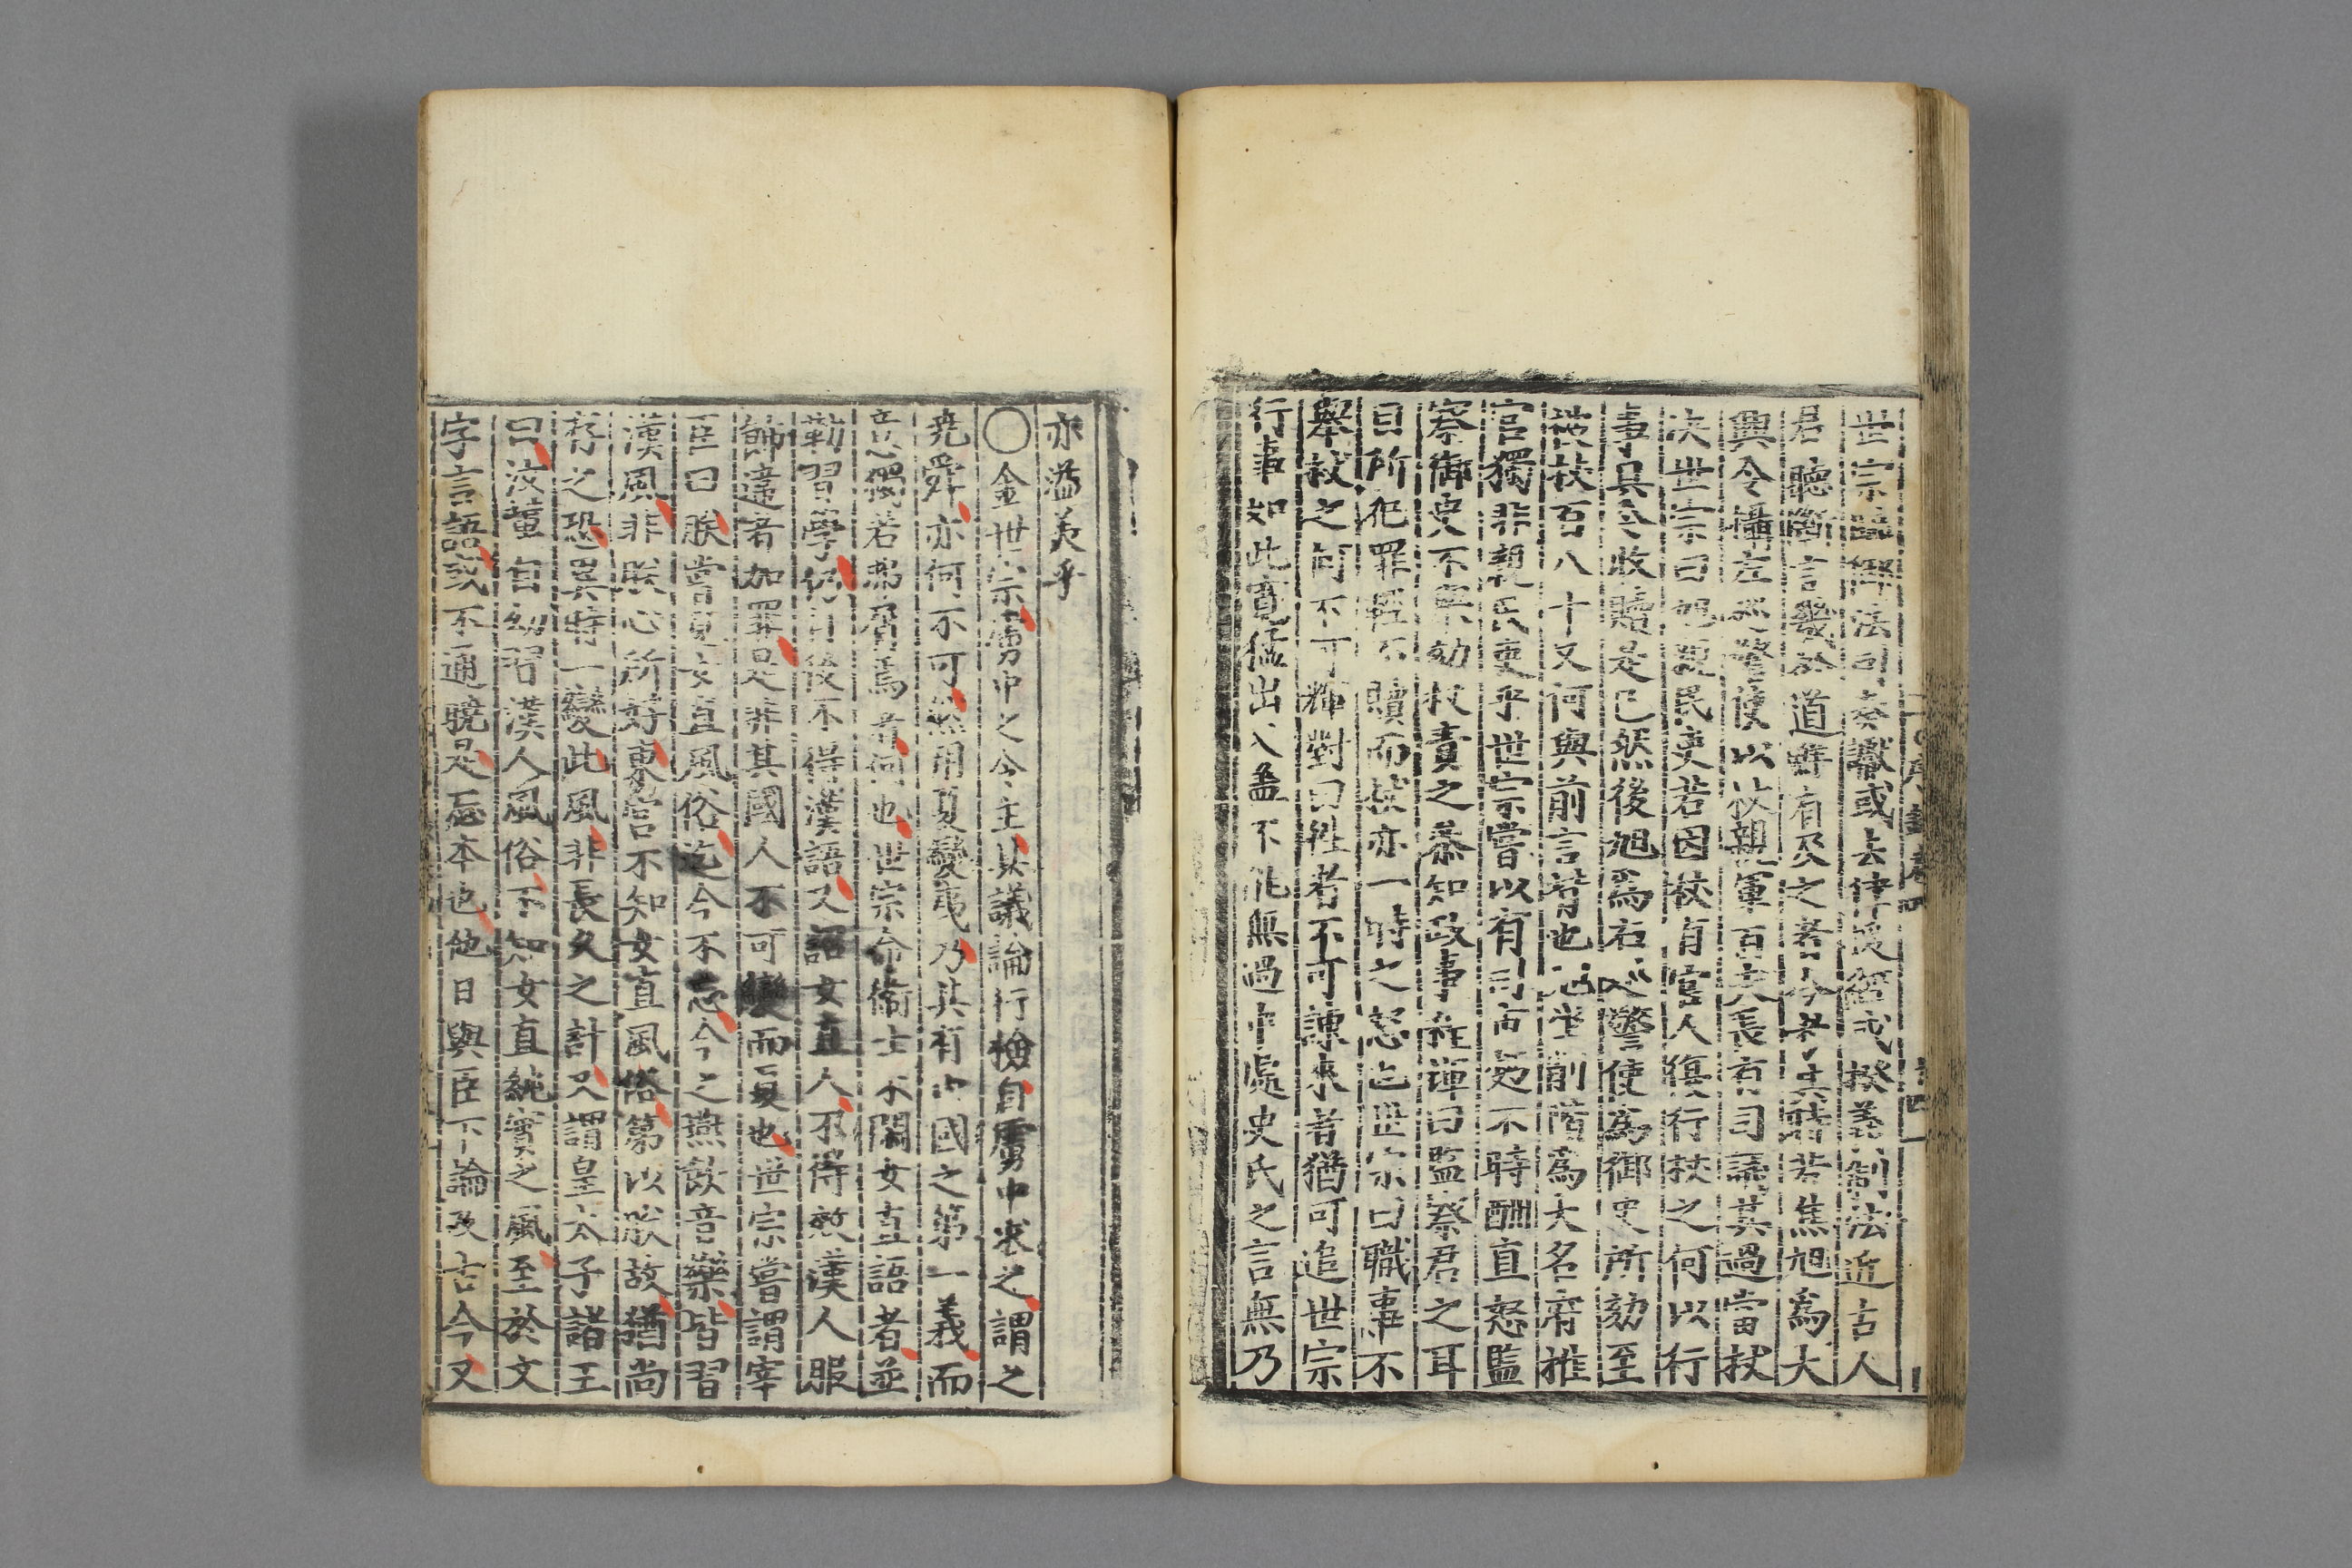 世宗臨御法司奏讞或去律援經或揆義制法近古人
君聽斷言幾於道鮮有及之者今考其時若焦旭爲大
興令攝左巡警使以杖親軍百夫長有司議其過當杖
决世宗曰旭親民吏若因杖有官人復行杖之何以行
事其令收贖是已然後旭爲右巡警使爲御史所劾至
被杖百八十又何與前言背也
官獨非親民吏乎世宗嘗以有司市麪不時酬直怒監
察御史不舉劾杖責之叅知政事程輝曰監察君之耳
目所犯罪輕不贖而杖亦一時之怒也世宗曰職事不
舉杖之何不可輝對曰徃者不可諫来者猶可追世宗
行事如此寛猛出入盖不能無過中處史氏之言無乃
亦溢美乎
〇金世宗虜中之令主其議論行檢自虜中求之謂之
堯舜亦何不可然用夏變夷乃其有中國之第一義而
意獨若弗屑焉者何也世宗命衛士不閑女直語者並
勒習學仍自後不得漢語又詔女直人不得效漢人服
飾違者加罪是非其國人不可變而夏也世宗嘗謂宰
臣曰朕嘗見女直風俗迄今不忘今之燕飲音樂皆習
漢風非朕心所好東宮不知女直風俗第以朕故猶尚
存之恐異時一變此風非長久之計又謂皇太子諸王
曰汝輩自幼習漢人風俗不知女直純實之風至於文
字言語或不通曉是忘本也他日與臣下論及古今又